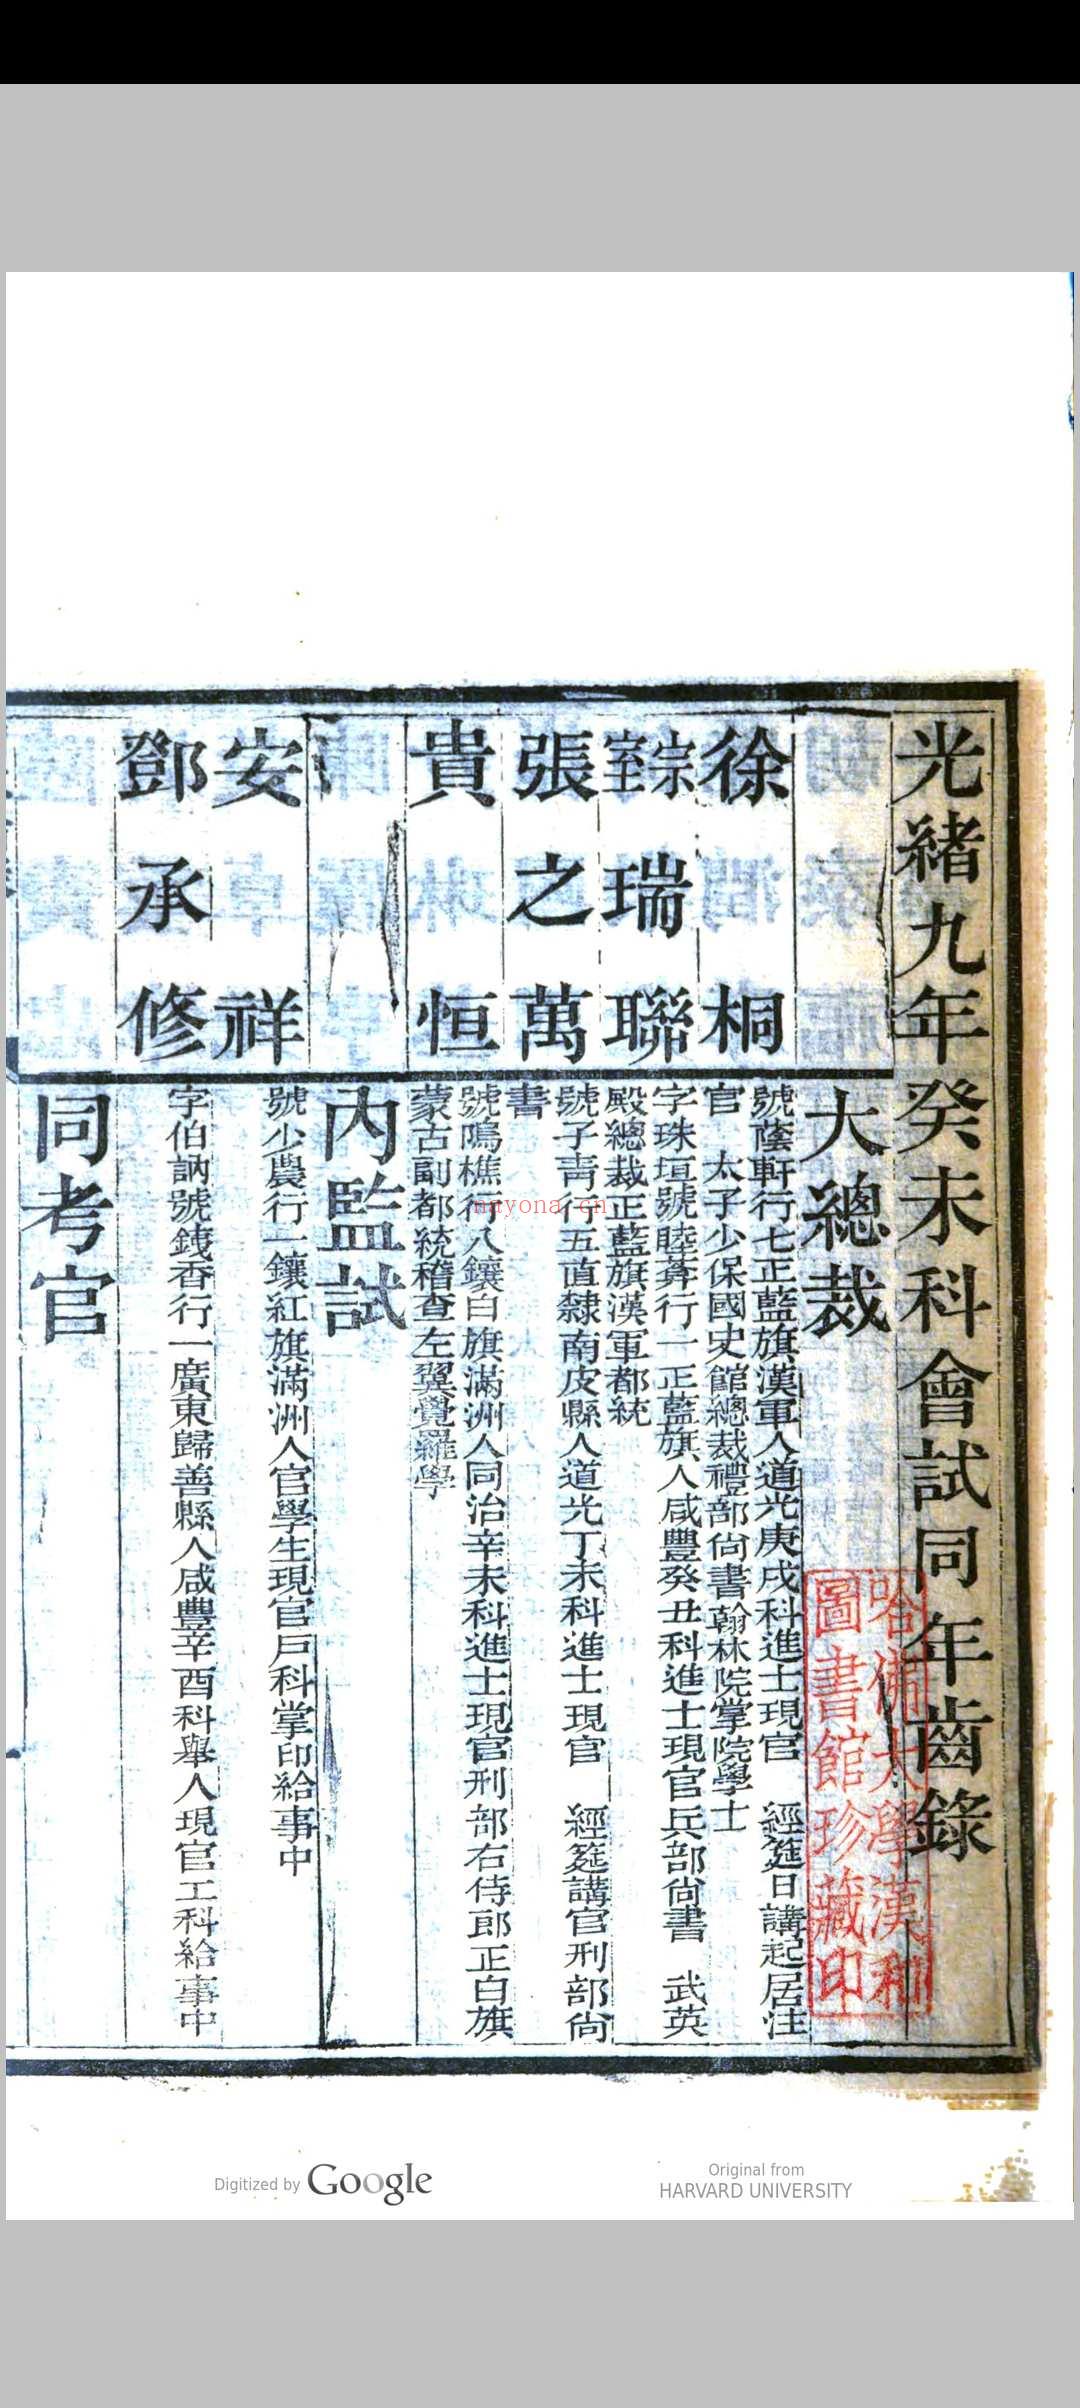 光緒九年癸未科會試同年齒錄
大總裁
徐桐
號蔭軒行七正藍旗漢軍人道光庚戌科進士現官 經筵日講起居注
官 太子少保國史館總裁禮部尚書翰林院掌院學士
宗室瑞聯
字珠垣號睦葊行一正藍旗人咸豐癸丑科進士現官兵部尚書 武英
殿總裁正藍旗漢軍都統
張之萬
號子青行五直隸南皮縣人道光丁未科進士現官 經筵講官刑部尚
書
貴恒
號鳴樵行八鑲白旗滿洲人同治辛未科進士現官刑部右侍郎正白旗
蒙古副都統稽查左翼覺羅學
內監試
安祥
號少農行一鑲紅旗滿洲人官學生現官戶科掌印給事中
鄧承修
字伯訥號鐵香行一廣東歸善縣人咸豐辛酉科舉人現官工科給事中
同考官
哈佛大學漢和
圖書館珍藏印
nayona.cn
Digitized by Google
Original from
HARVARD UNIVERSITY